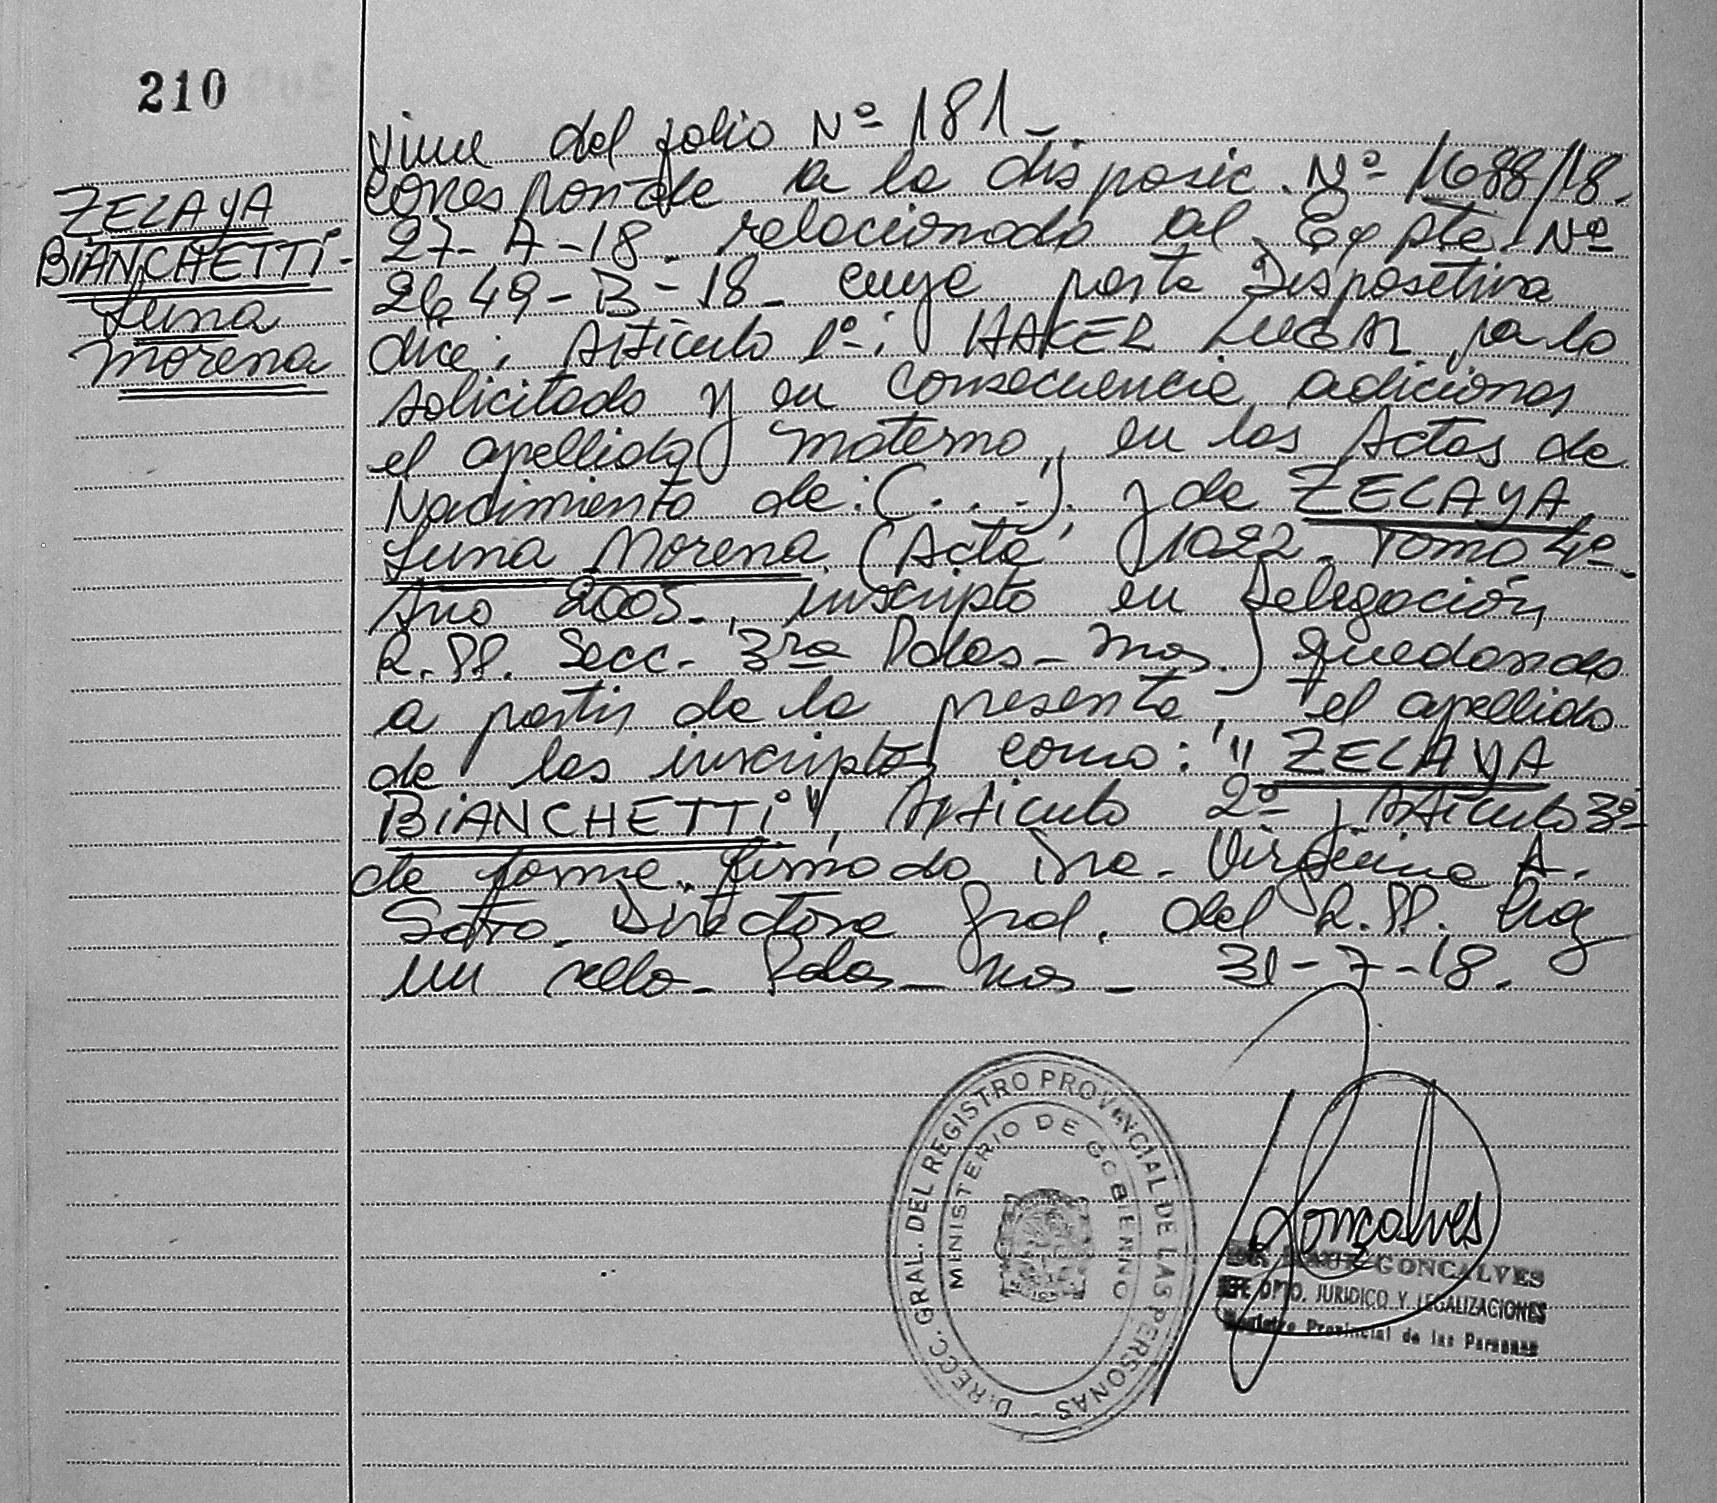 210
ZELAYA
BiANCHETTi-
Luna
Morena
Viene del folio Nº 181-.
Corresponde a la disposic. Nº 1688/18.
27-A-18. relacionado al Expte. Nº
2649-B-18- cuya parte Dispositiva
dice: Artículo 1º: HACER LUGAR a lo
solicitado y en consecuencia adicionar
el apellido materno, en las Actas de
Nacimiento de: (. . . .). y de ZELAYA,
Luna Morena. (Acta 1022. Tomo 4º-
Año 2005-, inscripto en Delegación,
R.PP. Secc. 3ra Pdas- Mnes.) quedando
a partir de la presente, el apellido
de los inscriptos como: "ZELAYA
BiANCHETTi", Artículo 2º y Artículo 3º
de forma. firmado Dra. Virginia A.
Directora Gral. del R.PP. Hay
un sello- Pdas- Mnes- 31-7-18.
DIRECC. GRAL. DEL REGISTRO PROVINCIAL DE LAS PERSONAS -
MINISTERIO DE GOBIERNO
Goncalves
GONCALVES
JEFE DPTO. JURIDICO Y LEGALIZACIONES
Registro Provincial de las Personas